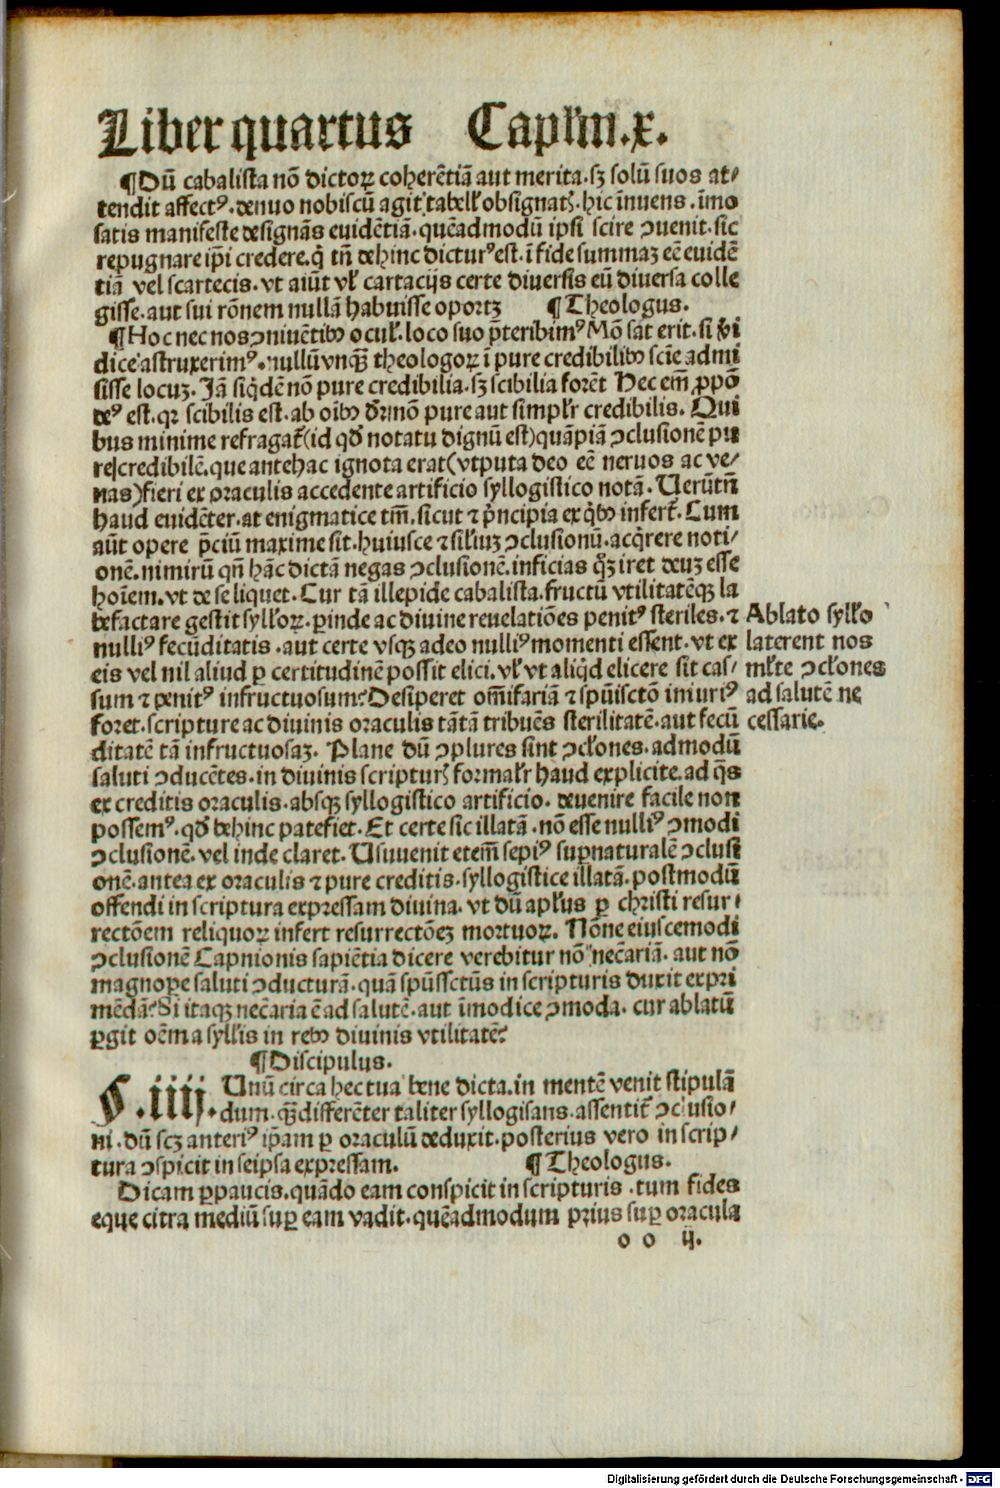 Liber quartus Capl'm.x.
¶Dū cabalista nō dictoꝝ coherētiā aut merita.sꝫ solū suos at⸗
tendit affectꝰ.denuo nobiscū agit.tabell' obsignat. hic inuens.īmo
satis manifeste designās euidētiā.quēadmodū ipsi scire ꝯuenit.sic
repugnare ip̄i credere.q̄ tn̄ dehinc dicturꝰ est.ī fide summaꝫ eē euidē
tiā vel scartecis.vt aiūt vl' cartacijs certe diuersis eū diuersa colle
gisse.aut sui rōnem nullā habuisse oportꝫ ¶Theologus.
¶Hoc nec nos ꝯniuētibꝰ ocul'.loco suo p̄teribimꝰ Mō sat erit.si
dice astruxerimꝰ.nullū vnqꝫ̄ theologoꝝ ī pure credibilibꝰ scīe admi
sisse locuꝫ.Jā siq̇dē nō pure credibilia.sꝫ scibilia forēt Nec em̄ ꝓpō
deꝰ est.qꝛ scibilis est.ab oībꝰ dr̄ nō pure aut simpl'r credibilis.Qui
bus minime refragat(id qd̓ notatu dignū est)quāpiā ꝯclusionē pu
re credibilē.que antehac ignota erat(vtputa deo eē neruos ac ve⸗
nas)fieri ex oraculis accedente artificio syllogistico notā.Uerūtn̄
haud euidēter.at enigmatice tm̄.sicut ⁊ p̄ncipia ex q̇bꝰ infert.Cum
aūt opere p̄ciū maxime sit.huiusce ⁊ sil'iuꝫ ꝯclusionū.acq̇rere noti⸗
onē.nimirū qn̄ hāc dictā negas ꝯclusionē.inficias qꝫ iret deuꝫ esse
hoīem.vt de se liquet.Cur tā illepide cabalista.fructū vtilitatēqꝫ la
befactare gestit syll'oꝝ.ꝑinde ac diuine reuelatiōes penitꝰ steriles.⁊
nulliꝰ fecūditatis.aut certe vsqꝫ adeo nulliꝰ momenti essent.vt ex
eis vel nil aliud ꝑ certitudinē possit elici.vl' vt aliq̇d elicere sit cas⸗
sum ⁊ penitꝰ infructuosum?Desiperet om̄ifariā ⁊ spūisctō iniuriꝰ
foret.scripture ac diuinis oraculis tātā tribuēs sterilitatē.aut fecū
ditatē tā infructuosaꝫ.Plane dū ꝯplures sint ꝯcl'ones.admodū
saluti ꝯducētes.in diuinis scriptur formal'r haud explicite.ad q̄s
ex creditis oraculis.absqꝫ syllogistico artificio.deuenire facile non
possemꝰ.qd̓ dehinc patefiet.Et certe sic illatā.nō esse nulliꝰ ꝯmodi
ꝯclusionē.vel inde claret.Usuuenit etem̄ sepiꝰ suꝑnaturalē ꝯclusi
onē.antea ex oraculis ⁊ pure creditis.syllogistice illatā.postmodū
offendi in scriptura expressam diuina.vt dū apl'us ꝑ christi resur⸗
rectōem reliquoꝝ infert resurrectōeꝫ mortuoꝝ.Nōne eiuscemodi
ꝯclusionē Capnionis sapiētia dicere verebitur nō nec̄ariā.aut nō
magnoꝑe saluti ꝯducturā.quā spūssctūs in scripturis duxit expri
mēdā?Si itaqꝫ nec̄aria ē ad salutē.aut īmodice ꝯmoda.cur ablatū
ꝑgit oēm a syll'is in rebꝰ diuinis vtilitatē?
¶Discipulus.
§.iiij. Unū circa hec tua bene dicta.in mentē venit stipulā
dum.qꝫ̄ differēter taliter syllogisans.assentit ꝯclusio⸗
ni.dū scꝫ anteriꝰ ip̄am ꝑ oraculū deduxit.posterius vero in scrip⸗
tura ꝯspicit in seipsa expressam. ¶Theologus.
Dicam ꝑpaucis.quādo eam conspicit in scripturis.tum fides
eque citra mediū suꝑ eam vadit.quēadmodum prius suꝑ oracula
o o ij.
Ablato syll'o
laterent nos
ml'te ꝯcl'ones
ad salutē ne
cessarie.
Digitalisierung gefördert durch die Deutsche Forschungsgemeinschaft - DFG